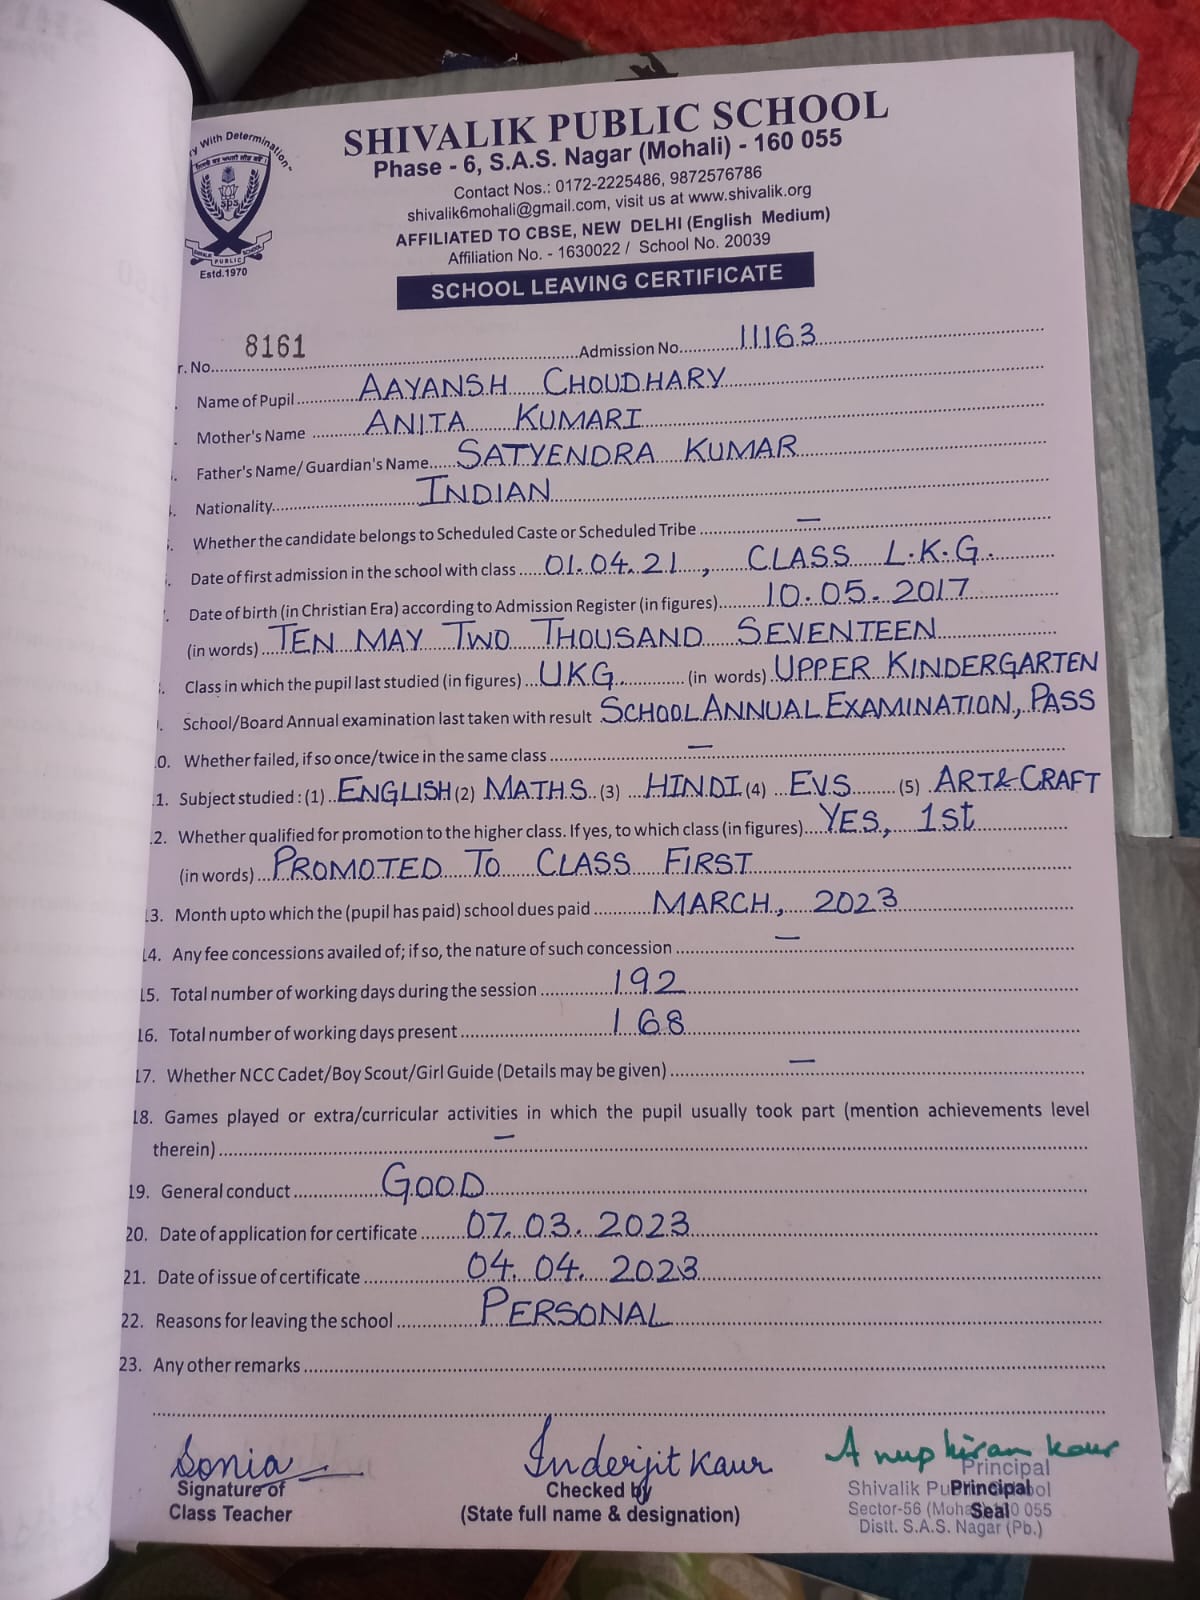 SHIVALIK PUBLIC SCHOOL
Phase - 6, S.A.S. Nagar (Mohali) - 160 055
Contact Nos.: 0172-2225486, 9872576786
shivalik6mohali@gmail.com, visit us at www.shivalik.org
AFFILIATED TO CBSE, NEW DELHI (English Medium)
Affiliation No. - 1630022 / School No. 20039
y With Determination"
SPS
SHIVALIK PUBLIC SCHOOL
Estd.1970
SCHOOL LEAVING CERTIFICATE
r. No. 8161 Admission No. 11163
Name of Pupil AAYANSH CHOUDHARY
Mother's Name ANITA KUMARI
Father's Name/ Guardian's Name SATYENDRA KUMAR
Nationality INDIAN
Whether the candidate belongs to Scheduled Caste or Scheduled Tribe —
Date of first admission in the school with class 01.04.21, CLASS L.K.G.
Date of birth (in Christian Era) according to Admission Register (in figures) 10.05.2017
(in words) TEN MAY TWO THOUSAND SEVENTEEN
Class in which the pupil last studied (in figures) UKG. (in words) UPPER KINDERGARTEN
School/Board Annual examination last taken with result SCHOOL ANNUAL EXAMINATION, PASS
0. Whether failed, if so once/twice in the same class —
1. Subject studied : (1) ENGLISH (2) MATHS (3) HINDI (4) EVS (5) ART& CRAFT
2. Whether qualified for promotion to the higher class. If yes, to which class (in figures) YES, 1st
(in words) PROMOTED TO CLASS FIRST
13. Month upto which the (pupil has paid) school dues paid MARCH, 2023
14. Any fee concessions availed of; if so, the nature of such concession —
15. Total number of working days during the session 192
16. Total number of working days present 168
17. Whether NCC Cadet/Boy Scout/Girl Guide (Details may be given) —
18. Games played or extra/curricular activities in which the pupil usually took part (mention achievements level
therein) —
19. General conduct GOOD
20. Date of application for certificate 07.03.2023
21. Date of issue of certificate 04.04.2023
22. Reasons for leaving the school PERSONAL
23. Any other remarks
Sonia Inderjit Kaur Anup kiran kaur
Signature of Checked by Principal
Class Teacher (State full name & designation) Seal
Principal
Shivalik Pu ol
Sector-56 (Moha 0 055
Distt. S.A.S. Nagar (Pb.)